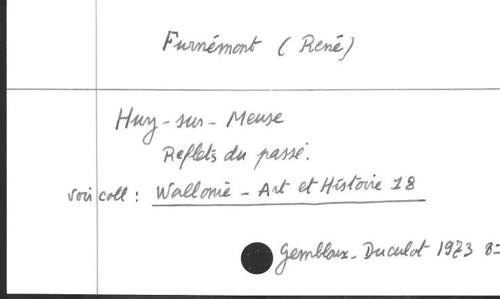 Furnémont (René)
Huy-sur-Meuse
Reflets du passé.
voir coll : Wallonie - Art et Histoire 18
Gembloux - Duculot 1973 8=